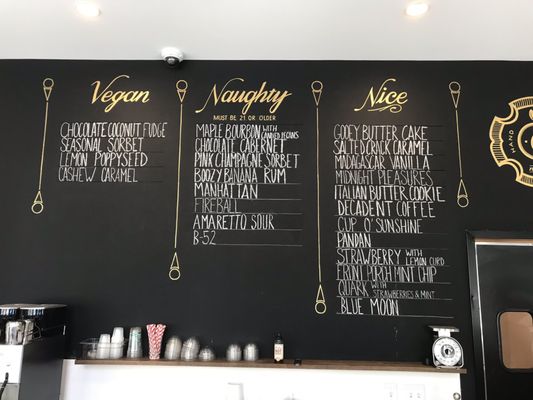 Vegan
CHOCOLATE COCONUT FUDGE
SEASONAL SORBET
LEMON POPPYSEED
CASHEW CARAMEL
Naughty
MUST BE 21 OR OLDER
MAPLE BOURBON WITH CANDIED PECANS
CHOCOLATE CABERNET
PINK CHAMPAGNE SORBET
BOOZY BANANA RUM
MANHATTAN
FIREBALL
AMARETTO SOUR
B-52
Nice
GOOEY BUTTER CAKE
SALTED CRACK CARAMEL
MADAGASCAR VANILLA
MIDNIGHT PLEASURES
ITALIAN BUTTER COOKIE
DECADENT COFFEE
CUP O' SUNSHINE
PANDAN
STRAWBERRY WITH LEMON CURD
FRONT PORCH MINT CHIP
QUARK WITH STRAWBERRIES & MINT
BLUE MOON
HAND